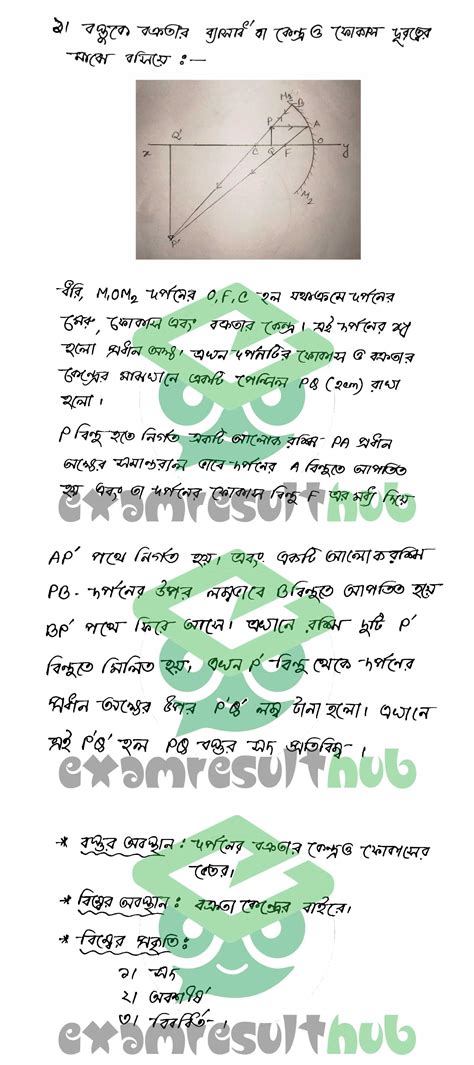 ২। বস্তুকে বক্রতার ব্যাসার্ধ বা কেন্দ্র ও ফোকাস দূরত্বের
মাঝে বসিয়ে :—
M₁
B
P
A
Q'
x
C
Q
F
O
y
M₂
P'
ধরি, M₁OM₂ দর্পনের O, F, C হল যথাক্রমে দর্পনের
মেরু, ফোকাস এবং বক্রতার কেন্দ্র। এই দর্পনের xy
হলো প্রধান অক্ষ। এখন দর্পনটির ফোকাস ও বক্রতার
কেন্দ্রের মাঝখানে একটি পেন্সিল PQ (2cm) রাখা
হলো।
P বিন্দু হতে নির্গত একটি আলোক রশ্মি PA প্রধান
অক্ষের সমান্তরাল ভাবে দর্পনের A বিন্দুতে আপতিত
হয় এবং তা দর্পনের ফোকাস বিন্দু F এর মধ্য দিয়ে
examresulthub
AP' পথে নির্গত হয়। এবং একটি আলোক রশ্মি
PB - দর্পনের উপর লম্বভাবে B বিন্দুতে আপতিত হয়ে
BP' পথে ফিরে আসে। এখানে রশ্মি দুটি P'
বিন্দুতে মিলিত হয়। এখন P' বিন্দু থেকে দর্পনের
প্রধান অক্ষের উপর P'Q' লম্ব টানা হলো। এখানে
এই P'Q' হল PQ বস্তুর সদ প্রতিবিম্ব।
examresulthub
* বস্তুর অবস্থান : দর্পনের বক্রতার কেন্দ্র ও ফোকাসের
ভেতর।
* বিম্বের অবস্থান : বক্রতা কেন্দ্রের বাইরে।
* বিম্বের প্রকৃতি :
১। সদ
২। অবশীর্ষ
৩। বিবর্ধিত।
examresulthub